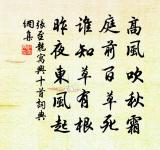 高風吹秋霜
庭前百草死
誰知草有根
昨夜東風起
張至龍寫興十首詞典
網集